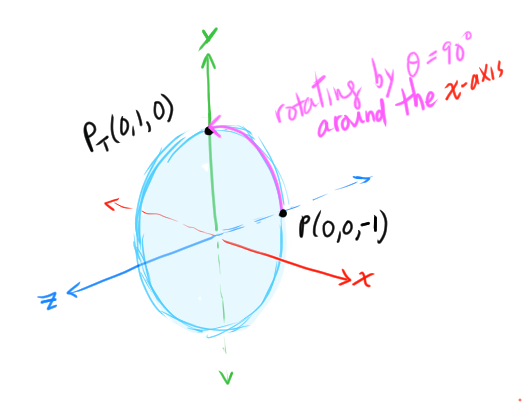 y
rotating by θ=90°
around the x-axis
P_T(0,1,0)
P(0,0,-1)
z
x